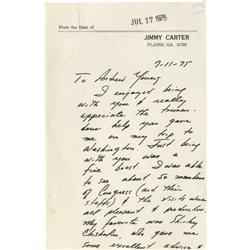 From the Desk of
JUL 17 1975
JIMMY CARTER
PLAINS, GA. 31780
7-11-75
To Andrew Young
I enjoyed being
with you & really
appreciate the tremen-
dous help you gave
me on my trip to
Washington! Just being
with you was a
fine boost. I was able
to see about 50 members
of Congress (and their
staffs) & the visits were
all pleasant & productive.
My favorite was Shirley
Chisholm who gave me
some excellent advice &